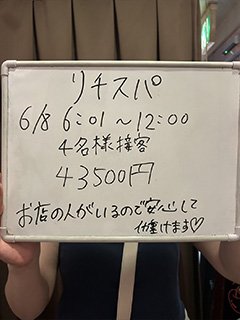 リチスパ
6/8 6:01～12:00
4名様接客
43500円
お店の人がいるので安心して
働けます♡